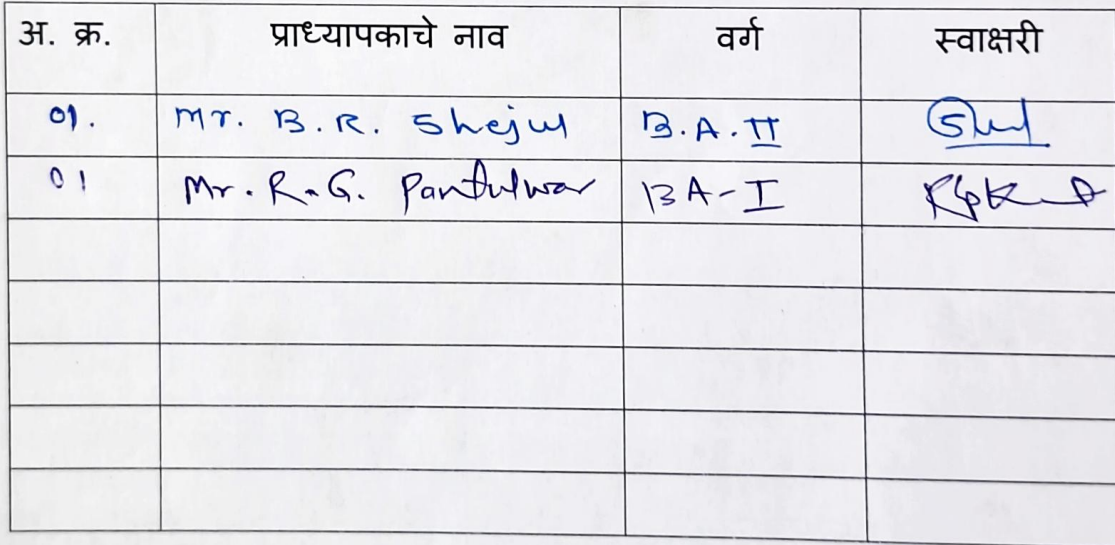 अ. क्र. प्राध्यापकाचे नाव वर्ग स्वाक्षरी
01. Mr. B. R. Shejul B.A. II
01 Mr. R. G. Pantulwar BA-I